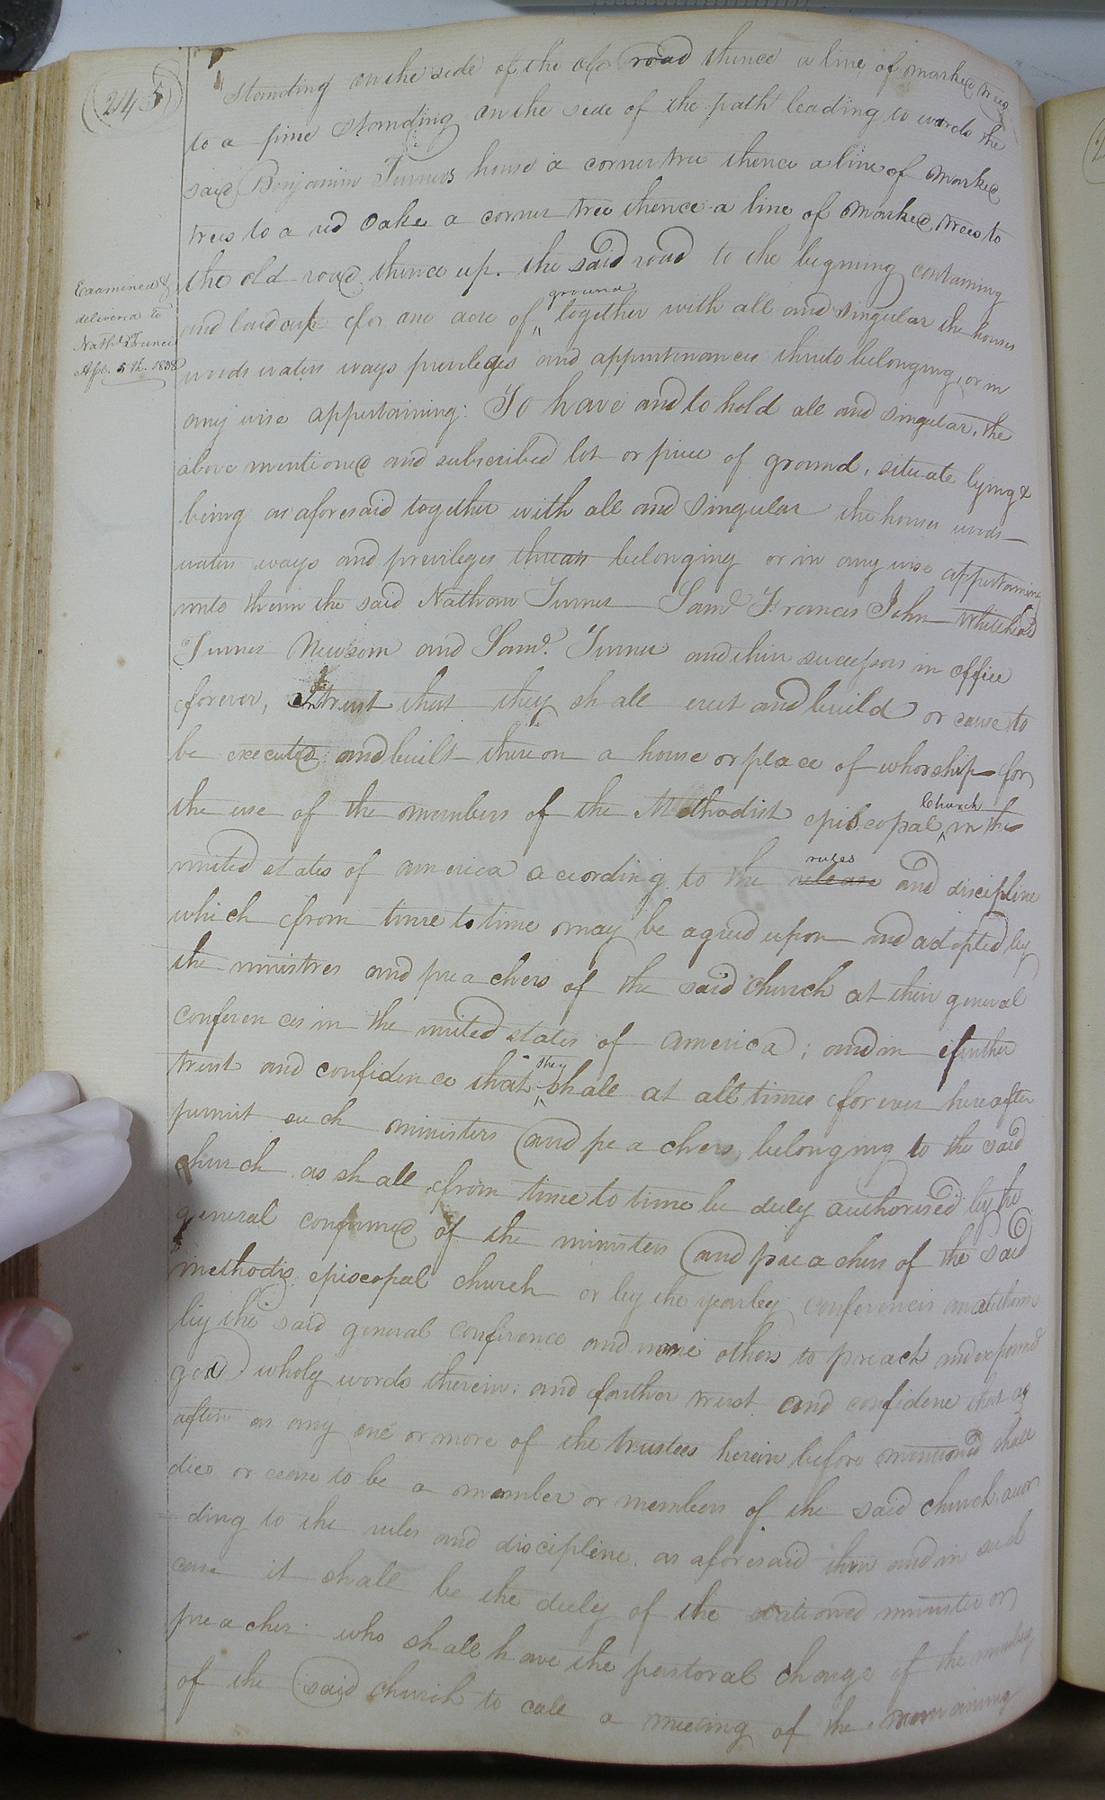 245
Standing on the side of the old road thence a line of marked trees
to a pine standing on the side of the path leading to wards the
said Benjamin Turners house a corner tree thence a line of marked
trees to a red Oake a corner tree thence a line of marked trees to
the old road thence up the said road to the begining containing
and laid out for one acre of ground together with all and singular the houses
woods waters ways privileges and appurtenances thereto belonging, or in
any wise appertaining: To have and to hold all and singular, the
above mentioned and subscribed lot or piece of ground, situate lying &
being as aforesaid together with all and singular the houses woods
waters ways and previleges thereas belonging or in any wise appertaining
unto them the said Nathan Turner Saml Francis John Whitehead
Turner Newsom and Saml. Turner and their successors in office
forever, In trust that they shall erect and build or cause to
be executed and built thereon a house or place of whorship for
the use of the members of the Methodist episcopal Church in the
united states of america acording to the rules and discipline
which from time to time may be agreed upon and adopted by
the ministres and preachers of the said church at their general
conferences in the united states of america; and in further
trust and confidence that they shall at all times forever hereafter
permit such ministers and preachers, belonging to the said
church as shall from time to time be duly authorised by the
general conferrnce of the ministers and preachers of the said
methodis episcopal church or by the yearley conferences
by the said general conference and none others to preach and expound
god wholy words therein; and further trust and confidenc that as
often as any one or more of the trustees herein before mentioned shall
die or cease to be a member or members of the said church accor
ding to the rules and discipline as aforesaid then and in such
case it shall be the duly of the stationed minister or
preacher who shall have the pastoral charge of the members
of the said church to call a meeting of the remaining
Examined &
delivered to
Nathl Turner
Apl. 5th. 1838